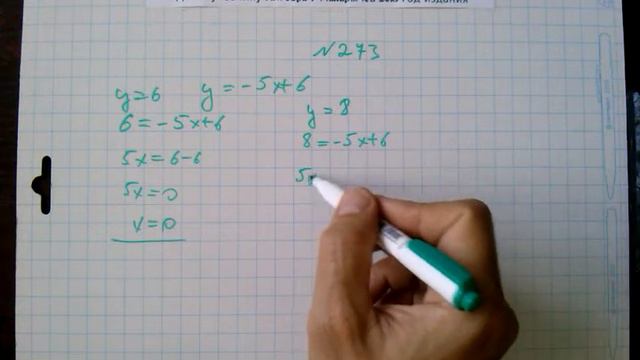 №273
y=6
y=-5x+6
6=-5x+6
5x=6-6
5x=0
x=0
y=8
8=-5x+6
5